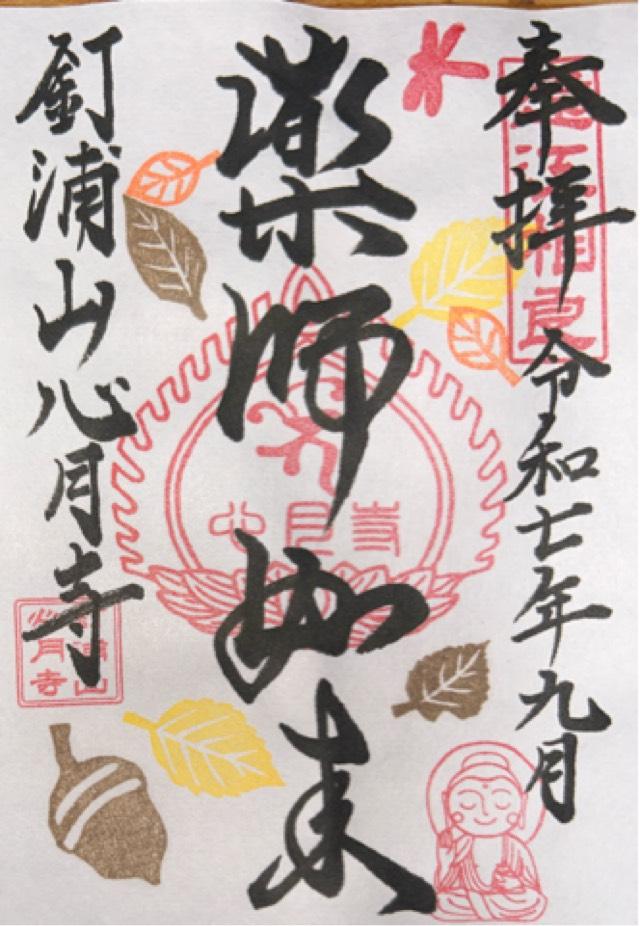 奉拝 令和七年九月
遠江相良
薬師如来
心月寺
釘浦山心月寺